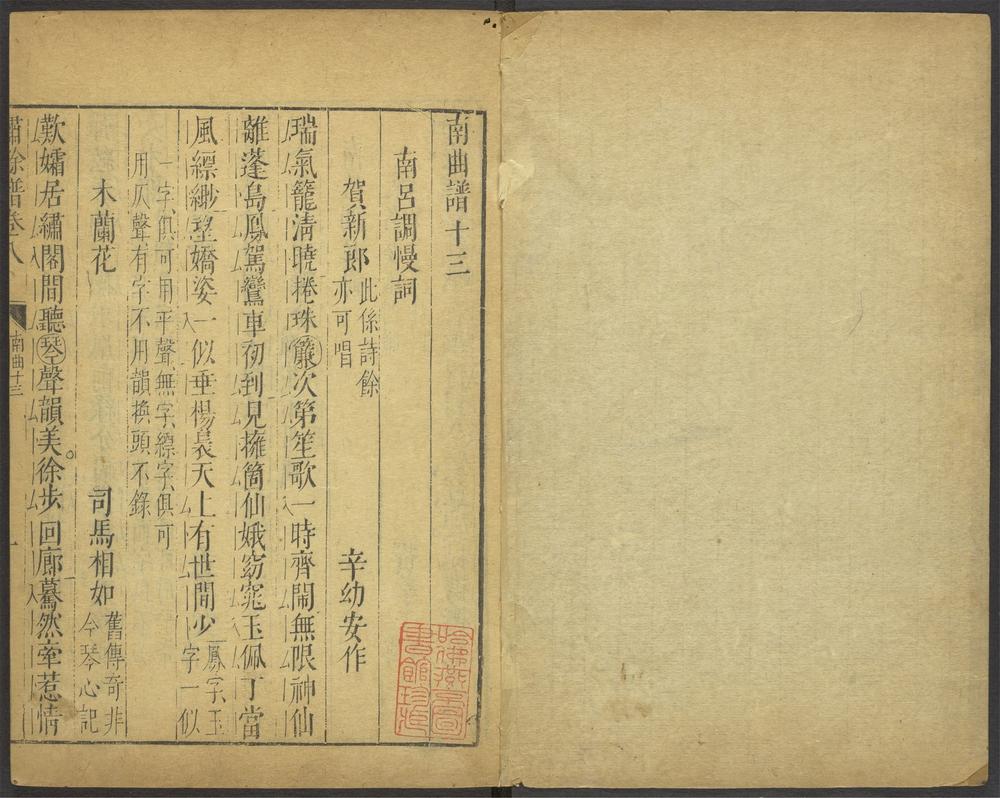 南曲譜十三
南呂調慢詞
賀新郎 此係詩餘亦可唱 辛幼安作
瑞氣籠淸曉捲珠簾次第笙歌一時齊閙無限神仙
離蓬島鳳駕鸞車初到見擁箇仙娥窈窕玉佩丁當
風縹緲望嬌姿一似垂楊裊天上有世間少 鳳字玉字一似
一字俱可用平聲無字縹字俱可
用仄聲有字不用韻換頭不錄
木蘭花 司馬相如 舊傳奇非今琴心記
歎孀居繡閣間聽琴聲韻美徐步回廊驀然牽惹情
嘯餘譜卷八 南曲十三 一
哈佛燕京圖書館珍藏